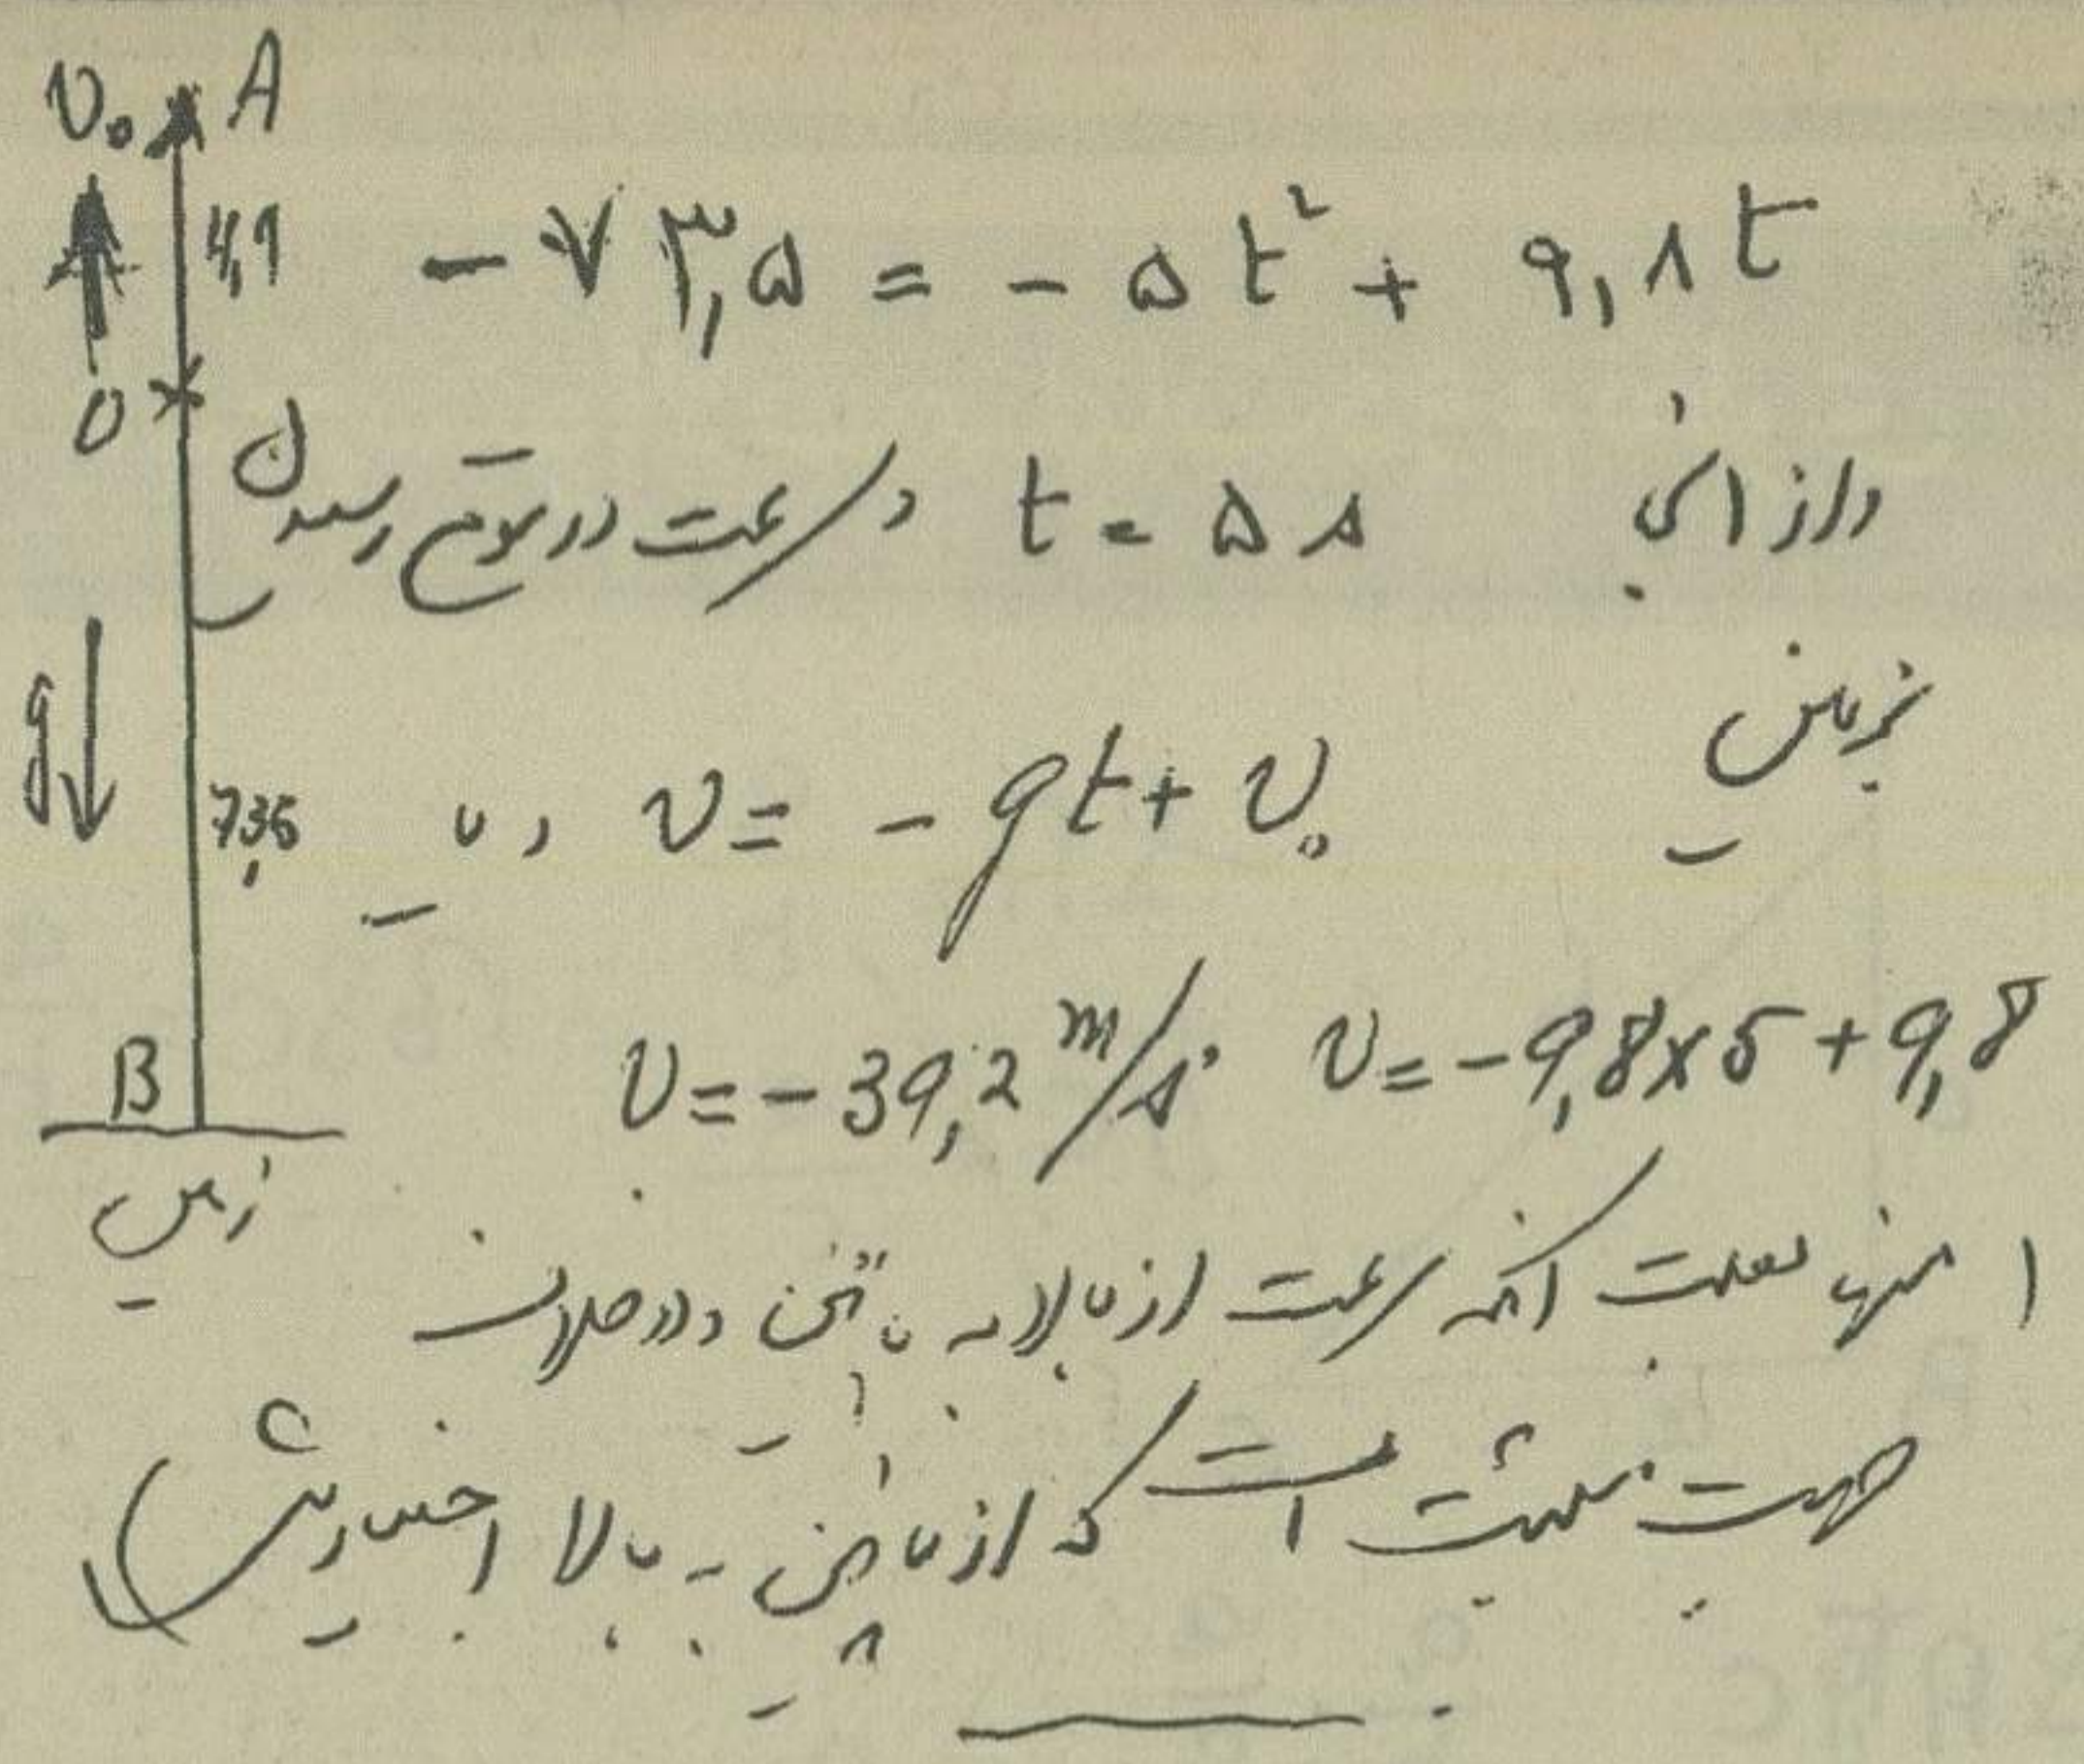 v₀ A
4,9 −۷۳,۵ = −۵t² + ۹,۸t
O
و از آنجا t = ۵s و سرعت در موقع رسیدن
g
بزمین
735 با v = −gt + v₀
v = −9,8×5 + 9,8 v = −39,2 m/s
B
زمین
(منها بعلت آنکه سرعت از بالا به پائین و در خلاف
جهت مثبت است که از پائین به بالا اختیار شد)